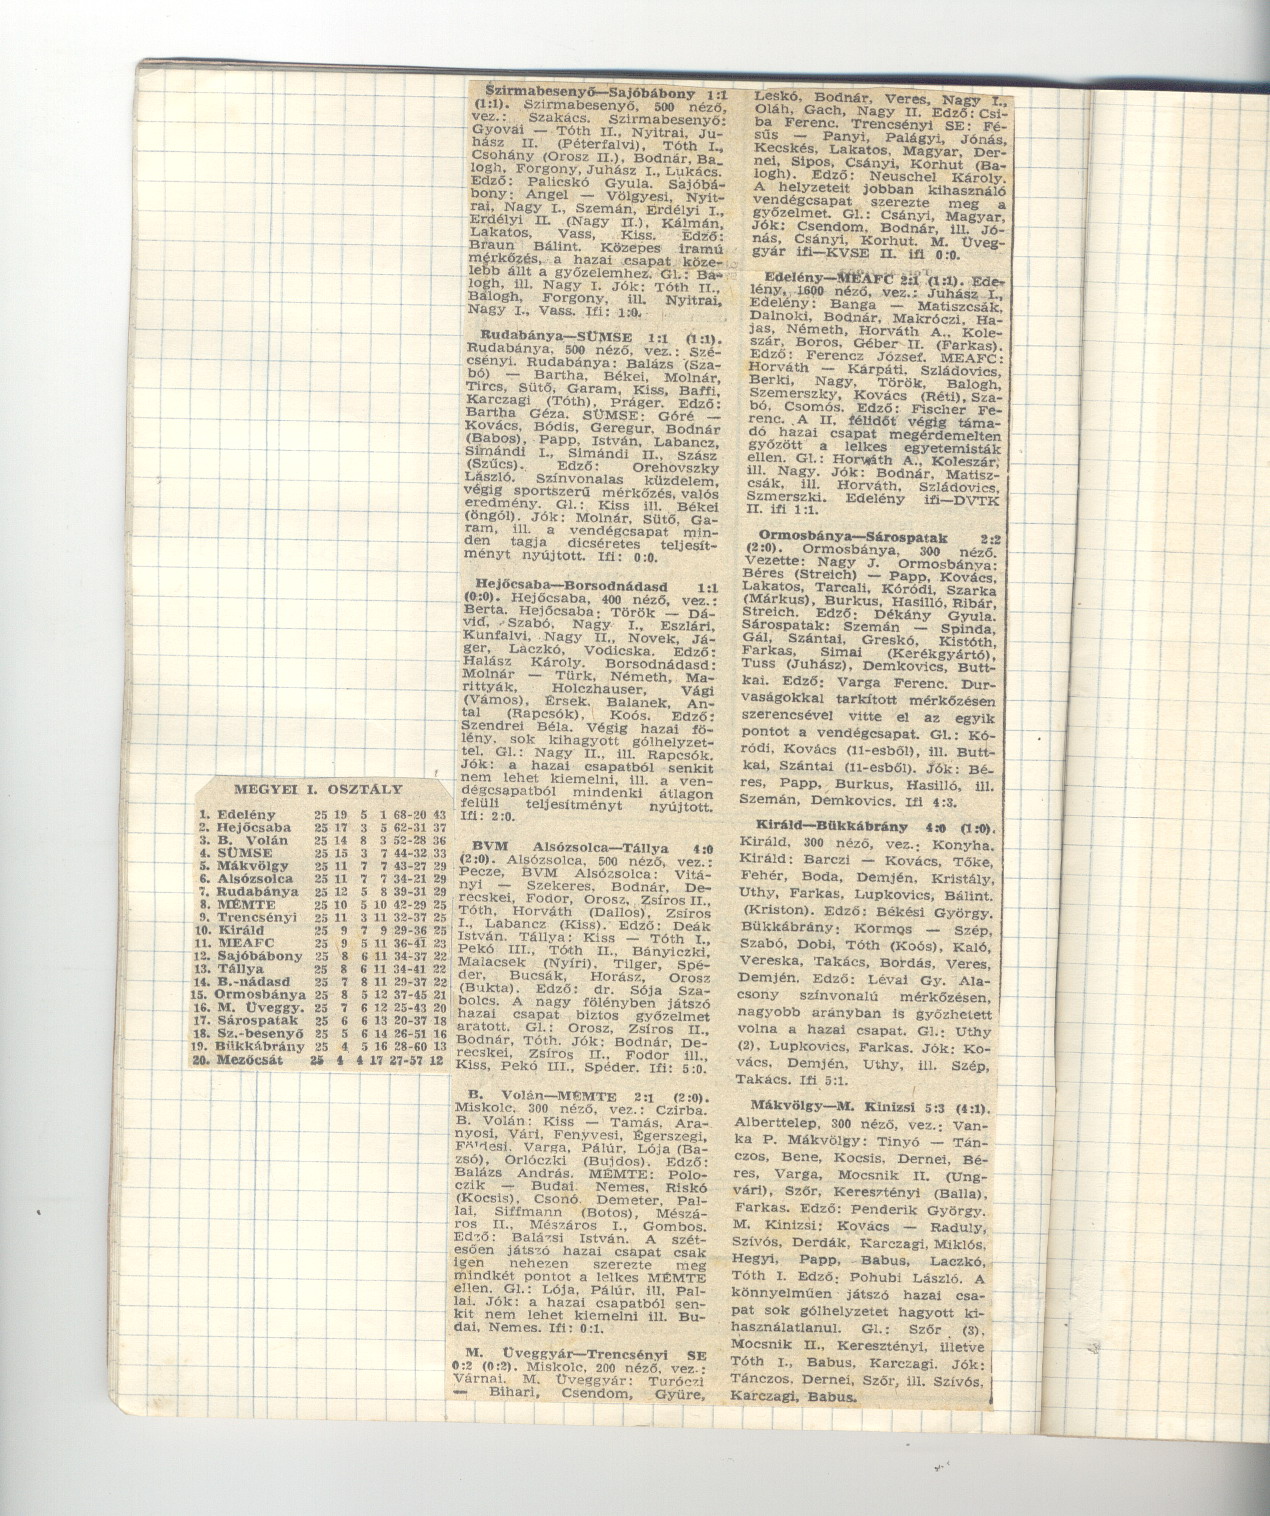 MEGYEI I. OSZTÁLY
1. Edelény 25 19 5 1 68-20 43
2. Hejőcsaba 25 17 3 5 62-31 37
3. B. Volán 25 14 8 3 52-28 36
4. SÜMSE 25 15 3 7 44-32 33
5. Mákvölgy 25 11 7 7 43-27 29
6. Alsózsolca 25 11 7 7 34-21 29
7. Rudabánya 25 12 5 8 39-31 29
8. MÉMTE 25 10 5 10 42-29 25
9. Trencsényi 25 11 3 11 32-37 25
10. Királd 25 9 7 9 29-36 25
11. MEAFC 25 9 5 11 36-41 23
12. Sajóbábony 25 8 6 11 34-37 22
13. Tállya 25 8 6 11 34-41 22
14. B.-nádasd 25 7 8 11 29-37 22
15. Ormosbánya 25 8 5 12 37-45 21
16. M. Üveggy. 25 7 6 12 25-43 20
17. Sárospatak 25 6 6 13 20-37 18
18. Sz.-besenyő 25 5 6 14 26-51 16
19. Bükkábrány 25 4 5 16 28-60 13
20. Mezőcsát 25 4 4 17 27-57 12
Szirmabesenyő—Sajóbábony 1:1
(1:1). Szirmabesenyő, 500 néző,
vez.: Szakács. Szirmabesenyő:
Gyovai — Tóth II., Nyitrai, Ju-
hász II. (Péterfalvi), Tóth I.,
Csohány (Orosz II.), Bodnár, Ba-
logh, Forgony, Juhász I., Lukács.
Edző: Palicskó Gyula. Sajóbá-
bony: Angel — Völgyesi, Nyit-
rai, Nagy I., Szemán, Erdélyi I.,
Erdélyi II. (Nagy II.), Kálmán,
Lakatos, Vass, Kiss. Edző:
Braun Bálint. Közepes iramú
mérkőzés, a hazai csapat köze-
lebb állt a győzelemhez. Gl.: Ba-
logh, ill. Nagy I. Jók: Tóth II.,
Balogh, Forgony, ill. Nyitrai,
Nagy I., Vass. Ifi: 1:0.
Rudabánya—SÜMSE 1:1 (1:1).
Rudabánya, 500 néző, vez.: Szé-
csényi. Rudabánya: Balázs (Sza-
bó) — Bartha, Békei, Molnár,
Tircs, Sütő, Garam, Kiss, Baffi,
Karczagi (Tóth), Práger. Edző:
Bartha Géza. SÜMSE: Góré —
Kovács, Bódis, Geregur, Bodnár
(Babos), Papp, István, Labancz,
Simándi I., Simándi II., Szász
(Szűcs). Edző: Orehovszky
László. Színvonalas küzdelem,
végig sportszerű mérkőzés, valós
eredmény. Gl.: Kiss ill. Békei
(öngól). Jók: Molnár, Sütő, Ga-
ram, ill. a vendégcsapat min-
den tagja dicséretes teljesít-
ményt nyújtott. Ifi: 0:0.
Hejőcsaba—Borsodnádasd 1:1
(0:0). Hejőcsaba, 400 néző, vez.:
Berta. Hejőcsaba: Török — Dá-
vid, Szabó, Nagy I., Eszlári,
Kunfalvi, Nagy II., Novek, Já-
ger, Laczkó, Vodicska. Edző:
Halász Károly. Borsodnádasd:
Molnár — Türk, Németh, Ma-
rittyák, Holczhauser, Vági
(Vámos), Érsek, Balanek, An-
tal (Rapcsók), Koós. Edző:
Szendrei Béla. Végig hazai fö-
lény, sok kihagyott gólhelyzet-
tel. Gl.: Nagy II., ill. Rapcsók.
Jók: a hazai csapatból senkit
nem lehet kiemelni, ill. a ven-
dégcsapatból mindenki átlagon
felüli teljesítményt nyújtott.
Ifi: 2:0.
BVM Alsózsolca—Tállya 4:0
(2:0). Alsózsolca, 500 néző, vez.:
Pecze, BVM Alsózsolca: Vitá-
nyi — Szekeres, Bodnár, De-
recskei, Fodor, Orosz, Zsíros II.,
Tóth, Horváth (Dallos), Zsíros
I., Labancz (Kiss). Edző: Deák
István. Tállya: Kiss — Tóth I.,
Pekó III., Tóth II., Bányiczki,
Malacsek (Nyíri), Tilger, Spé-
der, Bucsák, Horász, Orosz
(Bukta). Edző: dr. Sója Sza-
bolcs. A nagy fölényben játszó
hazai csapat biztos győzelmet
aratott. Gl.: Orosz, Zsíros II.,
Bodnár, Tóth. Jók: Bodnár, De-
recskei, Zsíros II., Fodor ill.,
Kiss, Pekó III., Spéder. Ifi: 5:0.
B. Volán—MÉMTE 2:1 (2:0).
Miskolc, 300 néző, vez.: Czirba.
B. Volán: Kiss — Tamás, Ara-
nyosi, Vári, Fenyvesi, Egerszegi,
Földesi, Varga, Pálúr, Lója (Ba-
zsó), Orlóczki (Bujdos). Edző:
Balázs András. MÉMTE: Polo-
czik — Budai, Nemes, Riskó
(Kocsis), Csonó, Demeter, Pal-
lai, Siffmann (Botos), Mészá-
ros II., Mészáros I., Gombos.
Edző: Balázsi István. A szét-
esően játszó hazai csapat csak
igen nehezen szerezte meg
mindkét pontot a lelkes MÉMTE
ellen. Gl.: Lója, Pálúr, ill. Pal-
lai. Jók: a hazai csapatból sen-
kit nem lehet kiemelni ill. Bu-
dai, Nemes. Ifi: 0:1.
M. Üveggyár—Trencsényi SE
0:2 (0:2). Miskolc, 200 néző, vez.:
Várnai. M. Üveggyár: Turóczi
— Bihari, Csendom, Gyüre,
Leskó, Bodnár, Veres, Nagy I.,
Oláh, Gach, Nagy II. Edző: Csi-
ba Ferenc. Trencsényi SE: Fé-
sűs — Panyi, Palágyi, Jónás,
Kecskés, Lakatos, Magyar, Der-
nei, Sipos, Csányi, Korhut (Ba-
logh). Edző: Neuschel Károly.
A helyzeteit jobban kihasználó
vendégcsapat szerezte meg a
győzelmet. Gl.: Csányi, Magyar,
Jók: Csendom, Bodnár, ill. Jó-
nás, Csányi, Korhut. M. Üveg-
gyár ifi—KVSE II. ifi 0:0.
Edelény—MEAFC 2:1 (1:1). Ede-
lény, 1600 néző, vez.: Juhász I.,
Edelény: Banga — Matiszcsák,
Dalnoki, Bodnár, Makróczi, Ha-
jas, Németh, Horváth A., Kole-
szár, Boros, Géber II. (Farkas).
Edző: Ferencz József. MEAFC:
Horváth — Kárpáti, Szládovics,
Berki, Nagy, Török, Balogh,
Szemerszky, Kovács (Réti), Sza-
bó, Csomós. Edző: Fischer Fe-
renc. A II. félidőt végig táma-
dó hazai csapat megérdemelten
győzött a lelkes egyetemisták
ellen. Gl.: Horváth A., Koleszár,
ill. Nagy. Jók: Bodnár, Matisz-
csák, ill. Horváth, Szládovics,
Szmerszki. Edelény ifi—DVTK
II. ifi 1:1.
Ormosbánya—Sárospatak 2:2
(2:0). Ormosbánya, 300 néző.
Vezette: Nagy J. Ormosbánya:
Béres (Streich) — Papp, Kovács,
Lakatos, Tarcali, Kóródi, Szarka
(Márkus), Burkus, Hasilló, Ribár,
Streich. Edző: Dékány Gyula.
Sárospatak: Szemán — Spinda,
Gál, Szántai, Greskó, Kistóth,
Farkas, Simai (Kerékgyártó),
Tuss (Juhász), Demkovics, Butt-
kai. Edző: Varga Ferenc. Dur-
vaságokkal tarkított mérkőzésen
szerencsével vitte el az egyik
pontot a vendégcsapat. Gl.: Kó-
ródi, Kovács (11-esből), ill. Butt-
kai, Szántai (11-esből). Jók: Bé-
res, Papp, Burkus, Hasilló, ill.
Szemán, Demkovics. Ifi 4:3.
Királd—Bükkábrány 4:0 (1:0).
Királd, 300 néző, vez.: Konyha.
Királd: Barczi — Kovács, Tőke,
Fehér, Boda, Demjén, Kristály,
Uthy, Farkas, Lupkovics, Bálint.
(Kriston). Edző: Békési György.
Bükkábrány: Kormos — Szép,
Szabó, Dobi, Tóth (Koós), Kaló,
Vereska, Takács, Bordás, Veres,
Demjén. Edző: Lévai Gy. Ala-
csony színvonalú mérkőzésen,
nagyobb arányban is győzhetett
volna a hazai csapat. Gl.: Uthy
(2), Lupkovics, Farkas. Jók: Ko-
vács, Demjén, Uthy, ill. Szép,
Takács. Ifi 5:1.
Mákvölgy—M. Kinizsi 5:3 (4:1).
Alberttelep, 300 néző, vez.: Van-
ka P. Mákvölgy: Tinyó — Tán-
czos, Bene, Kocsis, Dernei, Bé-
res, Varga, Mocsnik II. (Ung-
vári), Szőr, Keresztényi (Balla),
Farkas. Edző: Penderik György.
M. Kinizsi: Kovács — Raduly,
Szívós, Derdák, Karczagi, Miklós,
Hegyi, Papp, Babus, Laczkó,
Tóth I. Edző: Pohubi László. A
könnyelműen játszó hazai csa-
pat sok gólhelyzetet hagyott ki-
használatlanul. Gl.: Szőr (3),
Mocsnik II., Keresztényi, illetve
Tóth I., Babus, Karczagi. Jók:
Tánczos, Dernei, Szőr, ill. Szívós,
Karczagi, Babus.